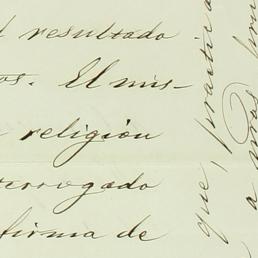 l resultado
os. El mis-
religión
terrogado
firma de
que, practica
a unos